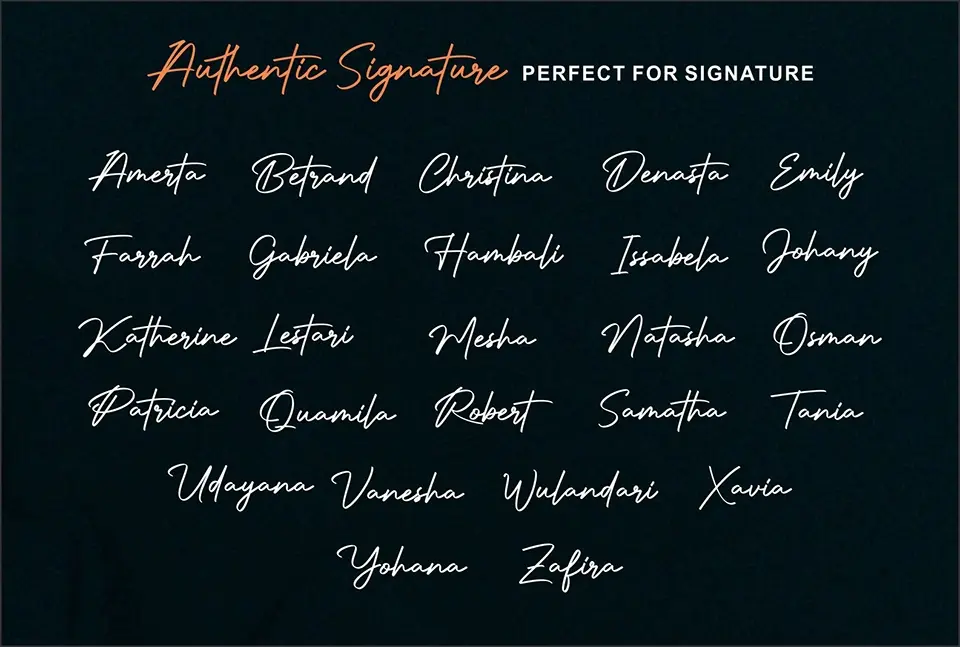 Authentic Signature PERFECT FOR SIGNATURE
Amerta Betrand Christina Denasta Emily
Farrah Gabriela Hambali Issabela Johany
Katherine Lestari Mesha Natasha Osman
Patricia Quamila Robert Samatha Tania
Udayana Vanesha Wulandari Xavia
Yohana Zafira